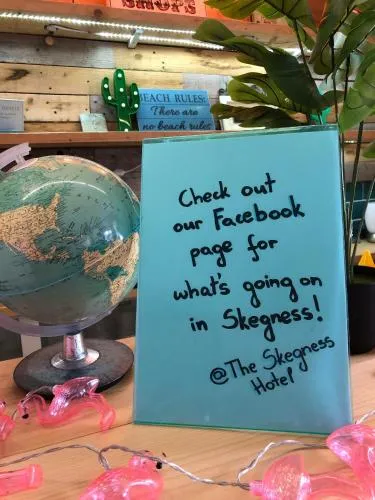 SHOPS
BEACH RULES:
There are
no beach rules
Check out
our Facebook
page for
what's going on
in Skegness!
@The Skegness
Hotel